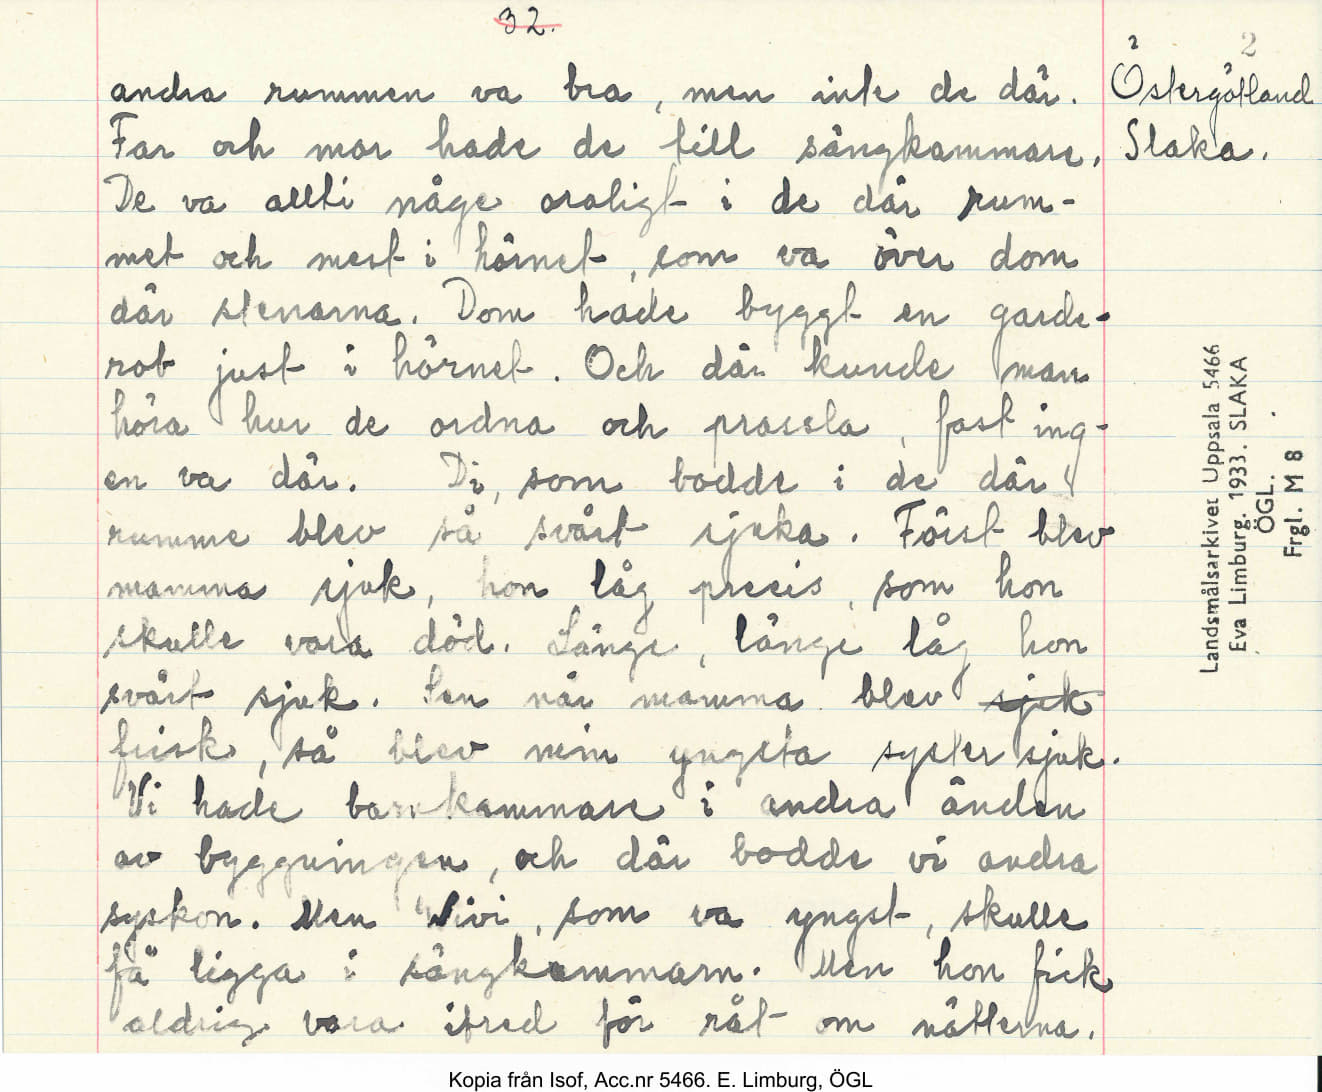 32.
andra rummen va bra, men inte de där.
Far och mor hade de till sängkammare.
De va allti någe oroligt i de där rum-
met och mest i hörnet, som va över dom
där stenarna. Dom hade byggt en garde-
rob just i hörnet. Och där kunde man
höra hur de ordna och prassla, fast ing-
en va där. Di, som bodde i de där
rumme blev så svårt sjuka. Först blev
mamma sjuk, hon låg precis, som hon
skulle vara död. Länge, länge låg hon
svårt sjuk. Sen när mamma blev sjuk
frisk, så blev min yngsta syster sjuk.
Vi hade barnkammare i andra änden
av byggningen, och där bodde vi andra
syskon. Men Vivi, som va yngst, skulle
få ligga i sängkammarn. Men hon fick
aldrig vara ifred för råt om nätterna.
2 2
Östergötland
Slaka.
Landsmålsarkivet Uppsala 5466
Eva Limburg. 1933. SLAKA
ÖGL.
Frgl. M 8
Kopia från Isof, Acc.nr 5466. E. Limburg, ÖGL